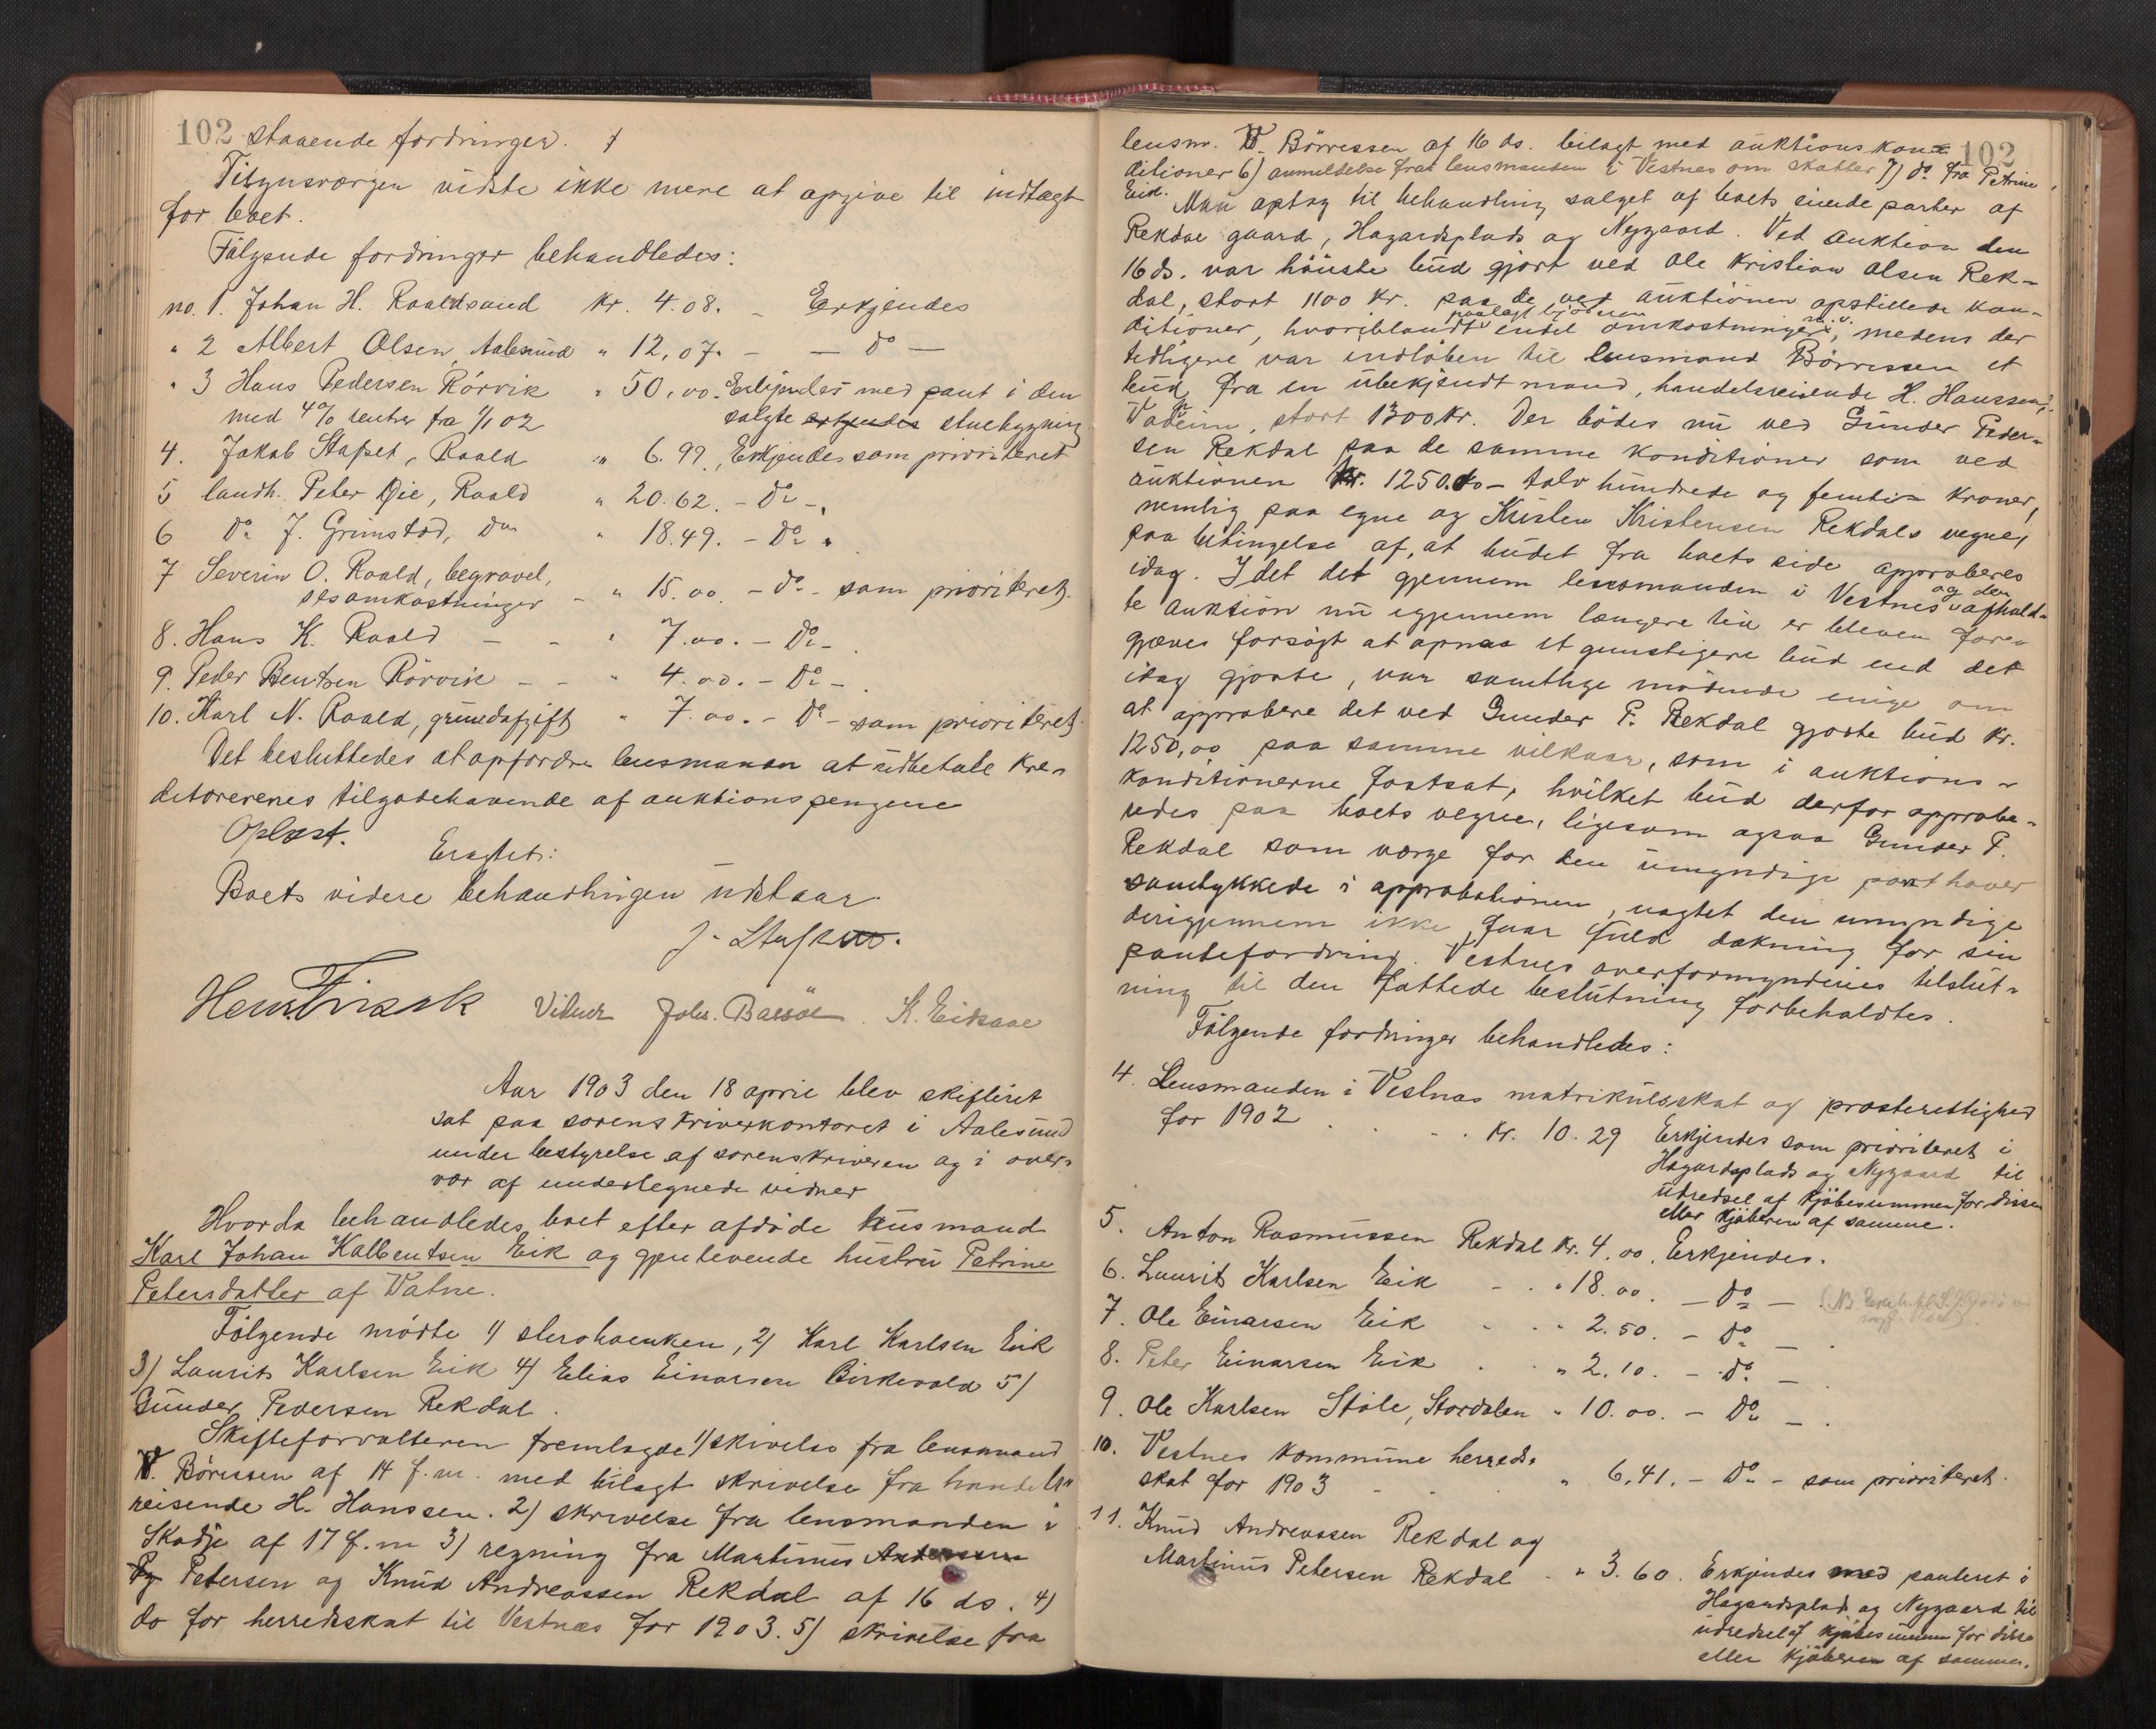 102 staaende fordringer.
Tilsynsværgen vidste ikke mere at opgive til indtægt
for boet.
Følgende fordringer behandledes:
no. 1. Johan H. Roaldsand Kr. 4.08. - Erkjendes
" 2 Albert Olsen, Aalesund " 12,07. - — do —
" 3 Hans Pedersen Rörvik " 50,00. Erkjendes med pant i den
med 4% renter fra 1/1 02 solgte stuebygning
4. Jakob Stapet, Roald " 6.99, Erkjendes som prioriteret
5 landh. Peter Øie, Roald " 20.62. - do -
6 do J. Grimstad, do " 18.49. - do "
7 Severin O. Roald, begravel,
sesomkostninger - " 15.00. - do - som prioriteret.
8. Hans K. Roald - - " 7.00. - do -
9. Peder Bentsen Rörvik - - " 4.00. - do -
10. Karl N. Roald, grundafgift " 7.00. - do - som prioriteret.
Det besluttedes at opfordre lensmanden at udbetale kre-
ditorerenes tilgodehavende af auktionspengene
Oplæst.
Eragtet:
Boets videre behandlingen udstaar
Vidner Johs. Barsöe. K. Eidsaae
Aar 1903 den 18 april blev skifteret
sat paa sorenskriverkontoret i Aalesund
under bestyrelse af sorenskriveren og i over-
vær af undertegnede vidner
Hvorda behandledes boet efter afdöde husmand
Karl Johan Kalbentsen Eik og gjenlevende hustru Petrine
Petersdatter af Vatne.
Følgende mödte 1) sterboenken, 2) Karl Karlsen Eik
3) Laurits Karlsen Eik 4) Elias Einarsen Birkevold 5)
Gunder Pedersen Rekdal.
Skifteforvalteren fremlagde 1) skrivelse fra lensmand
W. Börresen af 14 f.m. med bilagt skrivelse fra handels-
reisende H. Hanssen. 2) skrivelse fra lensmanden i
Skodje af 17 f.m 3) regning fra Martinus Andersen
Petersen og Knud Andreassen Rekdal af 16 ds. 4)
do for herredsskat til Vestnes for 1903. 5) skrivelse fra
102
lensm. W. Börresen af 16 ds. bilagt med auktionskon-
ditioner 6) anmeldelse fra lensmanden i Vestnes om skatter 7) do fra Petrine
Eik.
Man optog til behandling salget af boets eiende parter af
Rekdal gaard, Hagardsplads og Nygaard. Ved auktion den
16 ds. var höieste bud gjort ved Ole Kristian Olsen Rek-
dal, stort 1100 Kr. paa de ved auktionen opstillede kon-
paalagt kjöberen
ditioner, hvoriblandt endel omkostninger m.v., medens der
tidligere var indlöben til lensmand Börresen et
bud fra en ubekjendt mand, handelsreisende H. Hanssen,
Vadheim, stort 1300 Kr. Der bödes nu ved Gunder Peder-
sen Rekdal paa de samme konditioner som ved
auktionen Kr. 1250.00 - tolv hundrede og femti - kroner,
nemlig paa egne og Kristen Kristensen Rekdals vegne,
paa betingelse af, at budet fra boets side approberes
idag. Idet det gjennem lensmanden i Vestnes og den afhold-
te auktion nu igjennem længere tid er bleven for-
gjæves forsögt at opnaa et gunstigere bud end det
idag gjorte, var samtlige mödende enige om
at approbere det ved Gunder P. Rekdal gjorte bud Kr.
1250,00 paa samme vilkaar, som i auktions-
konditionerne fastsat, hvilket bud derfor approbe-
redes paa boets vegne, ligesom ogsaa Gunder P.
Rekdal som værge for den umyndige panthaver
samtykkede i approbationen, uagtet den umyndige
derigjennem ikke faar fuld dækning for sin
pantefordring. Vestnes overformynderies tilslut-
ning til den fattede beslutning forbeholdtes.
Følgende fordringer behandledes:
4. Lensmanden i Vestnæs matrikulsskat og presterettighed
for 1902 . . . Kr. 10.29 Erkjendes som prioriteret i
Hagardsplads og Nygaard til
udredsel af kjöbesummen for disse
eller kjöberen af samme.
5. Anton Rasmussen Rekdal Kr. 4.00. Erkjendes.
6. Laurits Karlsen Eik - . " 18.00. — do —
7. Ole Einarsen Eik - . " 2.50. - do -
8. Peter Einarsen Eik . " 2.10. - do -
9. Ole Karlsen Stöle, Stordalen " 10.00. - do -
10. Vestnes kommune herreds-
skat for 1903 - . " 6.41. - do - som prioriteret.
11. Knud Andreassen Rekdal og
Martinus Petersen Rekdal . " 3.60. Erkjendes med panteret i
Hagardsplads og Nygaard til
udredsel af kjöbesummen for disse
eller kjöberen af sammen.